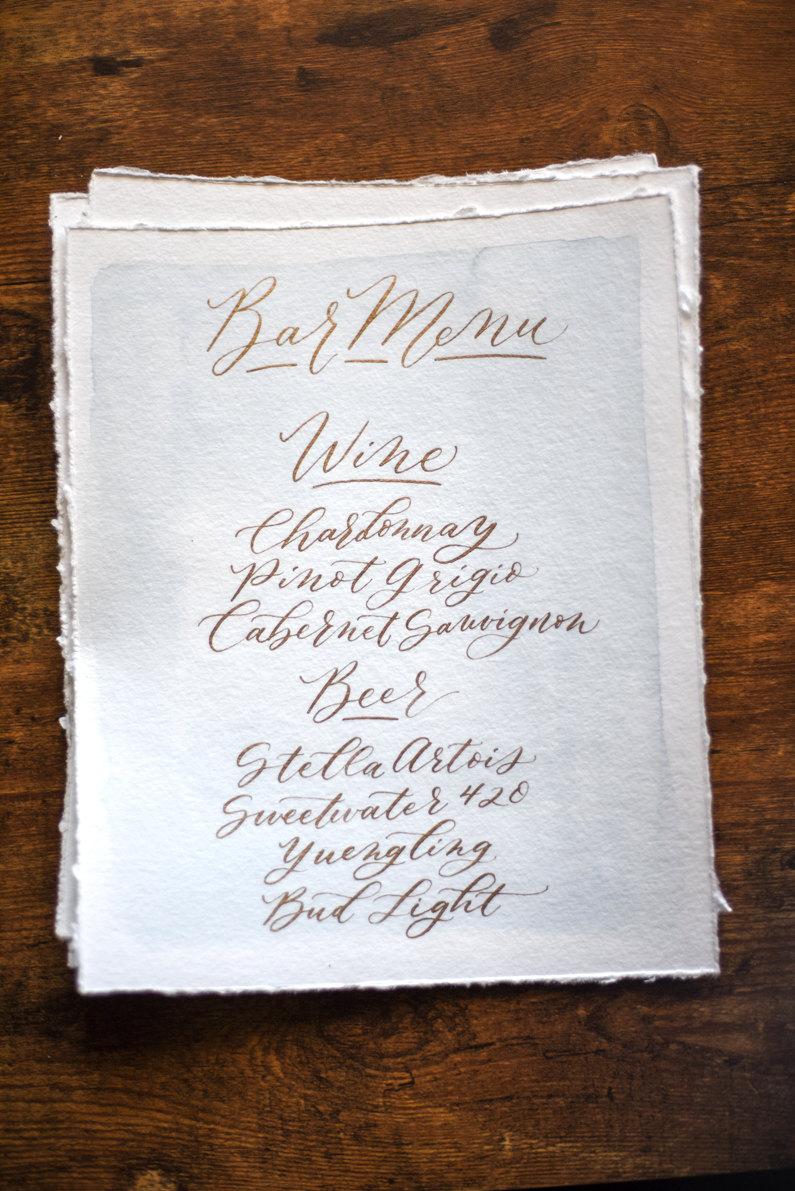 Bar Menu
Wine
Chardonnay
Pinot Grigio
Cabernet Sauvignon
Beer
Stella Artois
Sweetwater 420
Yuengling
Bud Light